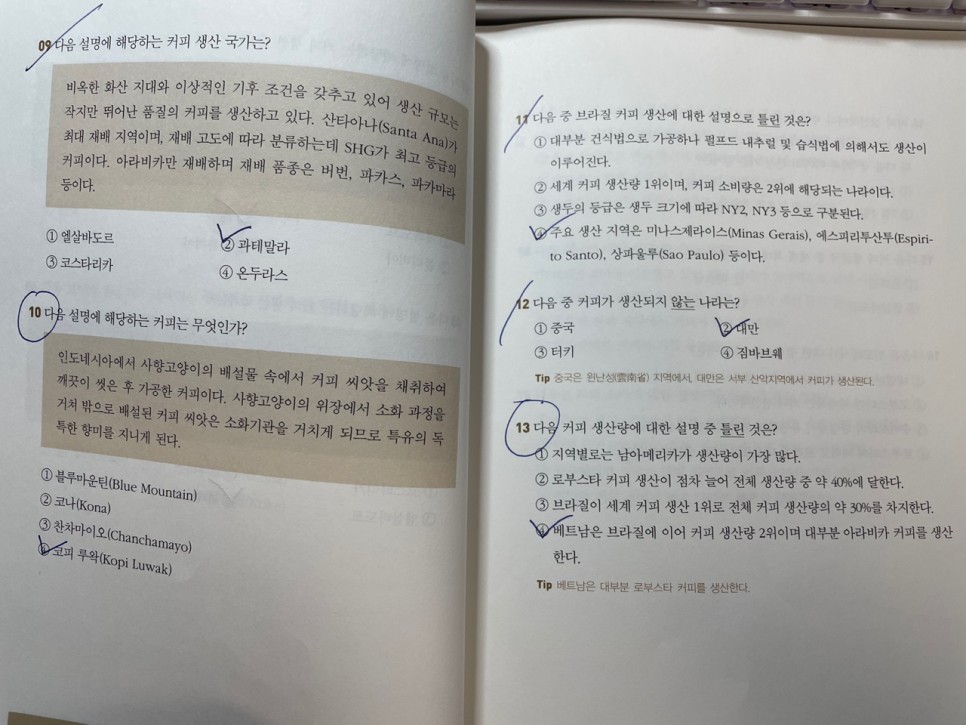 09 다음 설명에 해당하는 커피 생산 국가는?
비옥한 화산 지대와 이상적인 기후 조건을 갖추고 있어 생산 규모는
작지만 뛰어난 품질의 커피를 생산하고 있다. 산타아나(Santa Ana)가
최대 재배 지역이며, 재배 고도에 따라 분류하는데 SHG가 최고 등급의
커피이다. 아라비카만 재배하며 재배 품종은 버번, 파카스, 파카마라
등이다.
① 엘살바도르
② 과테말라
③ 코스타리카
④ 온두라스
10 다음 설명에 해당하는 커피는 무엇인가?
인도네시아에서 사향고양이의 배설물 속에서 커피 씨앗을 채취하여
깨끗이 씻은 후 가공한 커피이다. 사향고양이의 위장에서 소화 과정을
거쳐 밖으로 배설된 커피 씨앗은 소화기관을 거치게 되므로 특유의 독
특한 향미를 지니게 된다.
① 블루마운틴(Blue Mountain)
② 코나(Kona)
③ 찬차마이오(Chanchamayo)
④ 코피 루왁(Kopi Luwak)
11 다음 중 브라질 커피 생산에 대한 설명으로 틀린 것은?
① 대부분 건식법으로 가공하나 펄프드 내추럴 및 습식법에 의해서도 생산이
이루어진다.
② 세계 커피 생산량 1위이며, 커피 소비량은 2위에 해당되는 나라이다.
③ 생두의 등급은 생두 크기에 따라 NY2, NY3 등으로 구분된다.
④ 주요 생산 지역은 미나스제라이스(Minas Gerais), 에스피리투산투(Espiri-
to Santo), 상파울루(Sao Paulo) 등이다.
12 다음 중 커피가 생산되지 않는 나라는?
① 중국
② 대만
③ 터키
④ 짐바브웨
Tip 중국은 윈난성(雲南省) 지역에서, 대만은 서부 산악지역에서 커피가 생산된다.
13 다음 커피 생산량에 대한 설명 중 틀린 것은?
① 지역별로는 남아메리카가 생산량이 가장 많다.
② 로부스타 커피 생산이 점차 늘어 전체 생산량 중 약 40%에 달한다.
③ 브라질이 세계 커피 생산 1위로 전체 커피 생산량의 약 30%를 차지한다.
④ 베트남은 브라질에 이어 커피 생산량 2위이며 대부분 아라비카 커피를 생산
한다.
Tip 베트남은 대부분 로부스타 커피를 생산한다.